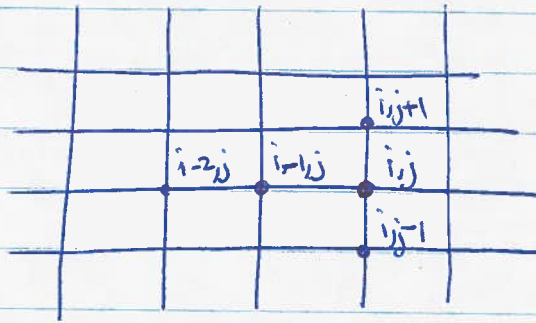 i,j+1
i-2,j i-1,j i,j
i,j-1